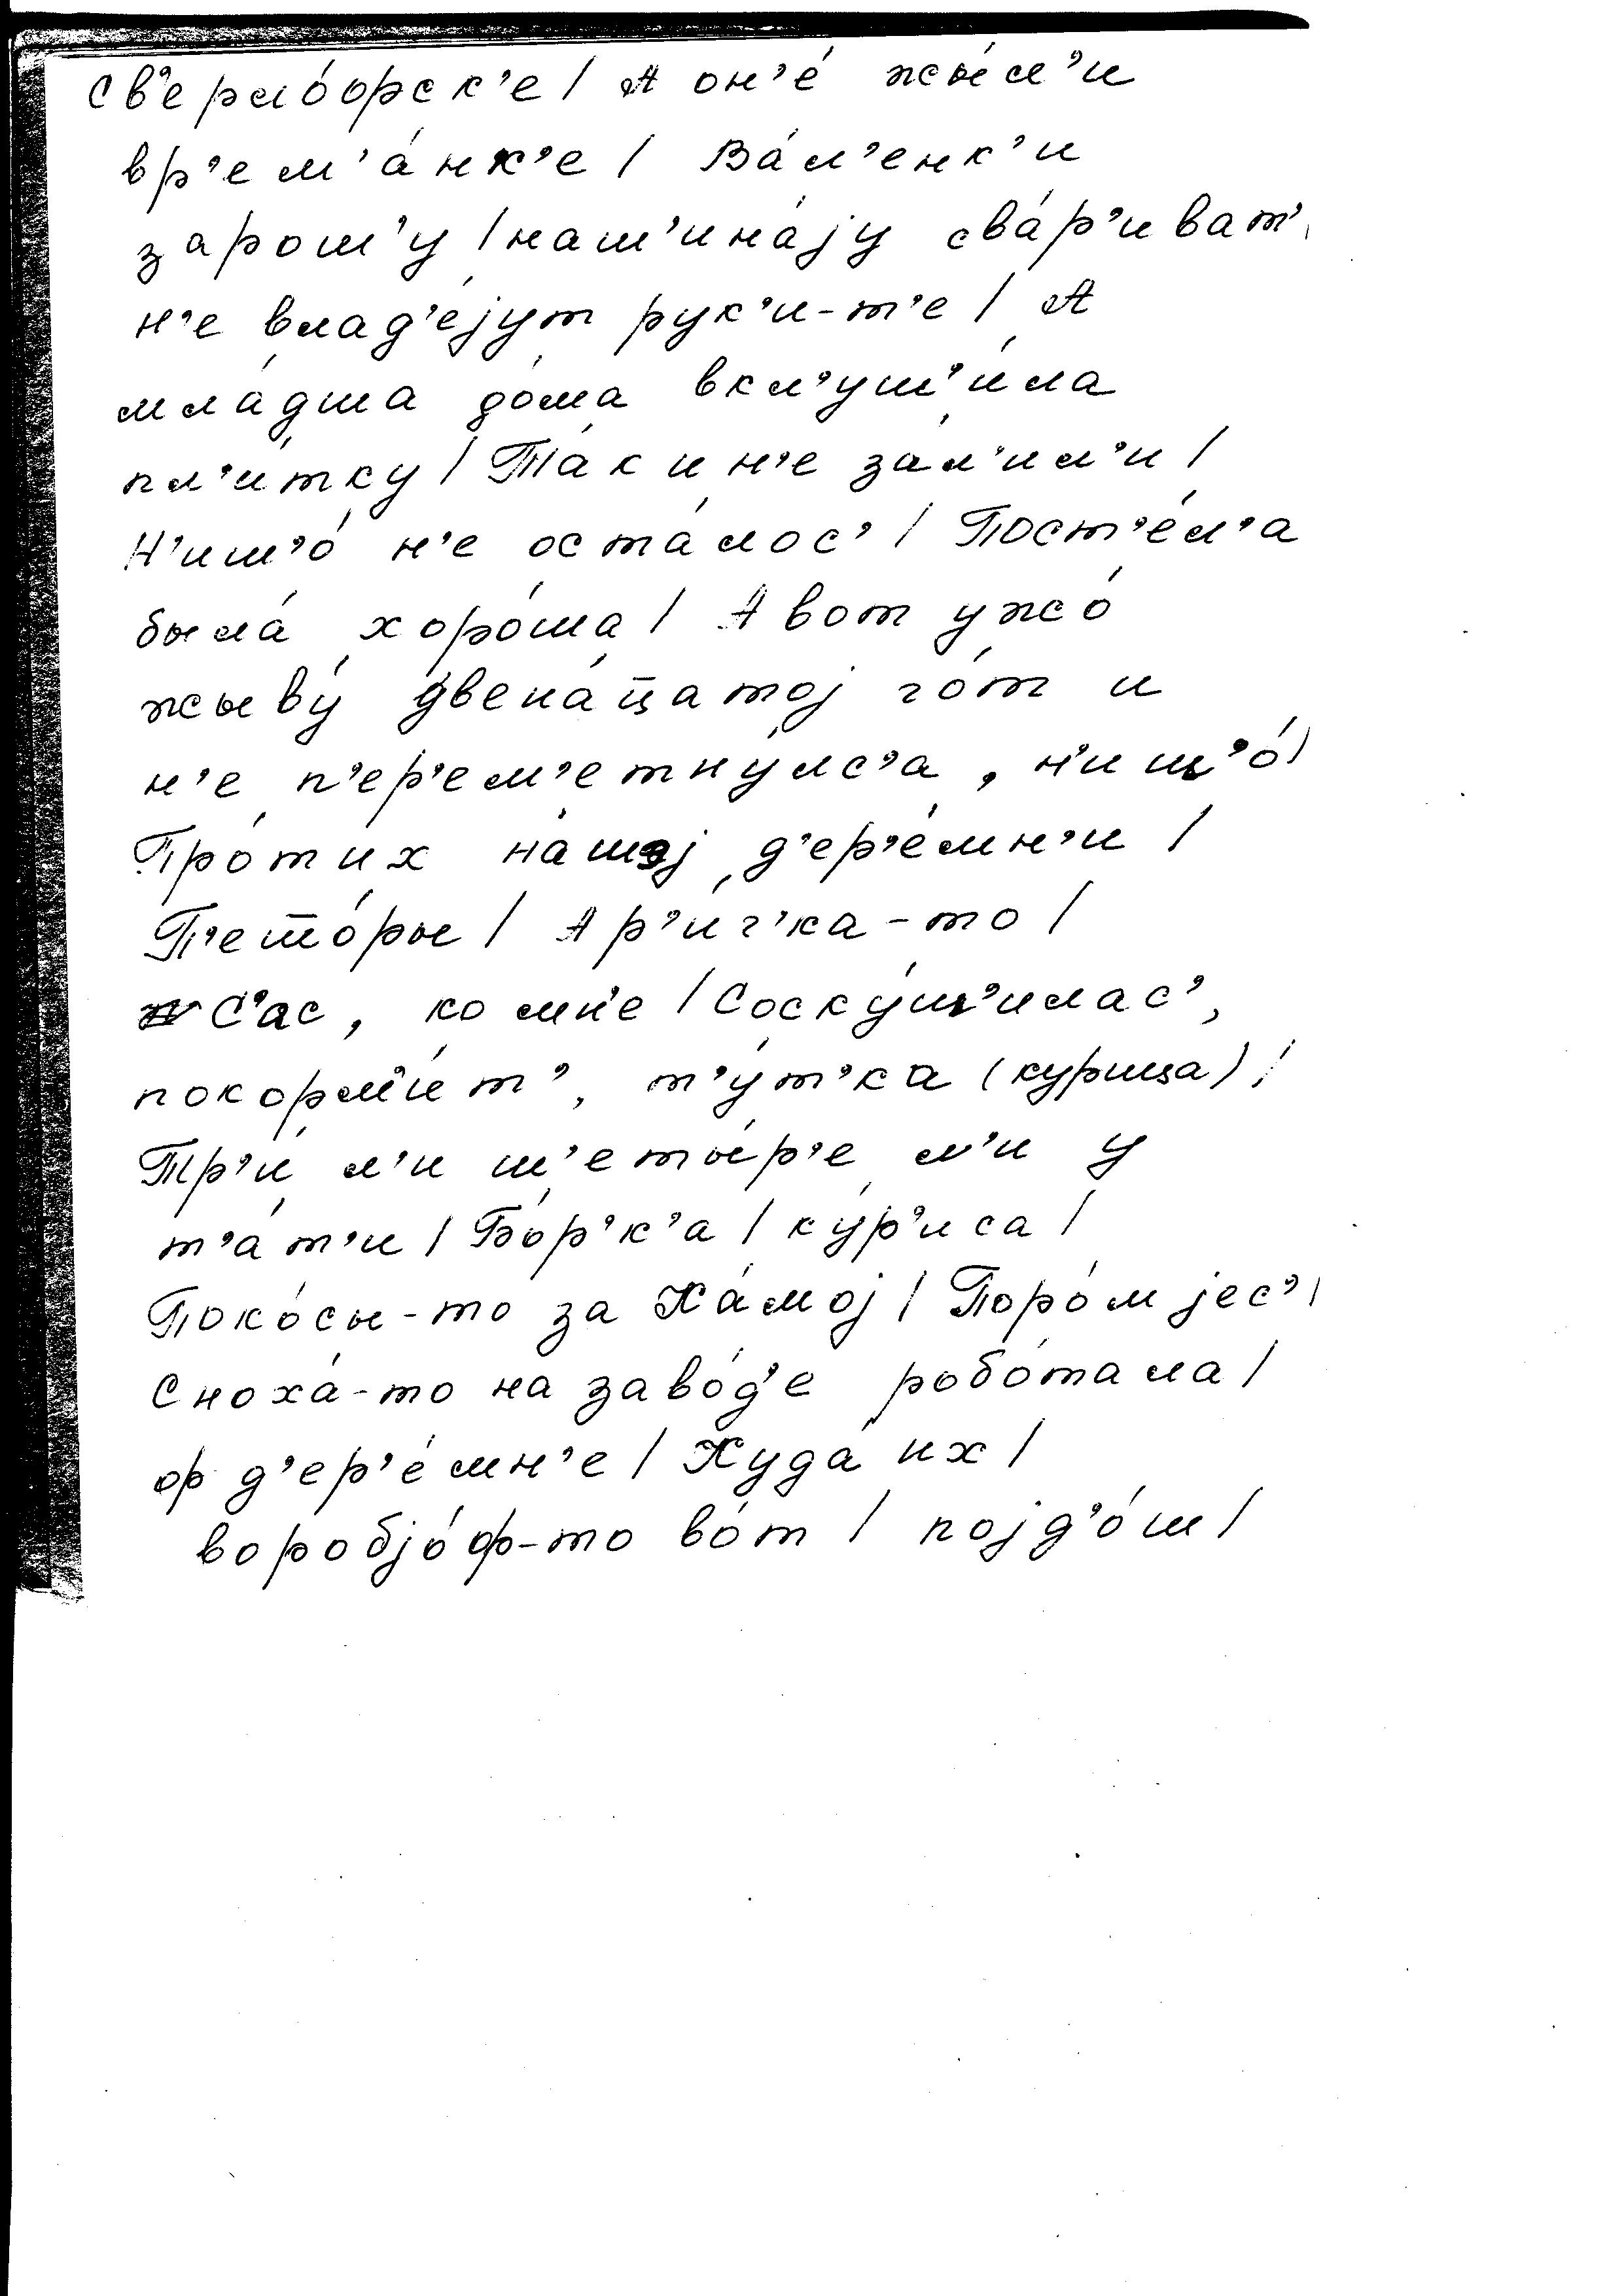 св'ерло́орск'е / А он'е́ жы́л'и
вр'ем'а́нк'е / Ва́л'енк'и
зарош'у / наш'ина́jу сва́р'иват' /
н'е влад'е́jут рук'и-т'е / А
мла́дша до́ма вкл'уш'и́ла
пл'и́тку / Та́к и н'е зал'и́л'и /
Н'иш'о́ н'е оста́лос' / Пост'е́л'а
была́ хоро́ша / А вот ужо́
жыву́ двена́цатоj го́т и
н'е п'ер'ем'етну́лс'а, н'иш'о́ /
Про́тих на́шэj д'ер'е́мн'и /
П'ешо́ры / А р'и́г'ка-то /
С'ас, ко мн'е / Соску́ш'илас',
покорм'и́т', т'у́т'ка (курица) /
Тр'и́ л'и ш'еты́р'е л'и у
т'а́т'и / Бо́р'к'а / ку́р'иса /
Поко́сы-то за Ка́моj / Поро́м jес' /
Сноха́-то на заво́д'е робо́тала /
оф д'ер'е́мн'е / Куда́ их /
воробjо́ф-то во́т / поjд'о́ш /